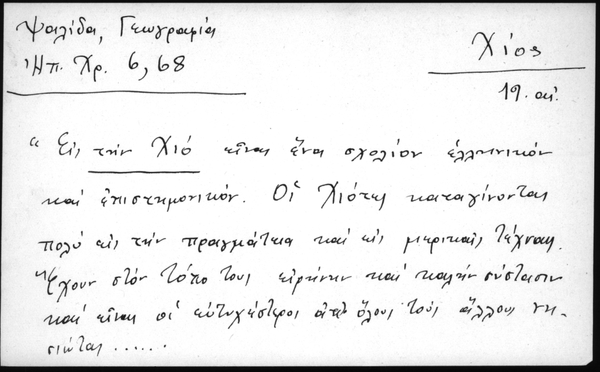 Ψαλίδα, Γεωγραφία
Ἠπ. Χρ. 6, 68
Χίος
19. αἰ.
"Εἰς τὴν Χιὸ εἶναι ἕνα σχολίον ἑλληνικόν
καὶ ἐπιστημονικόν. Οἱ Χιότες καταγίνονται
πολὺ εἰς τὴν πραγμάτεια καὶ εἰς μερικαῖς τέχναις.
Ἔχουν στὸν τόπο τους εἰρήνην καὶ καλὴν σύστασιν
καὶ εἶναι οἱ εὐτυχέστεροι ἀπ' ὅλους τοὺς ἄλλους νη-
σιώτας ......